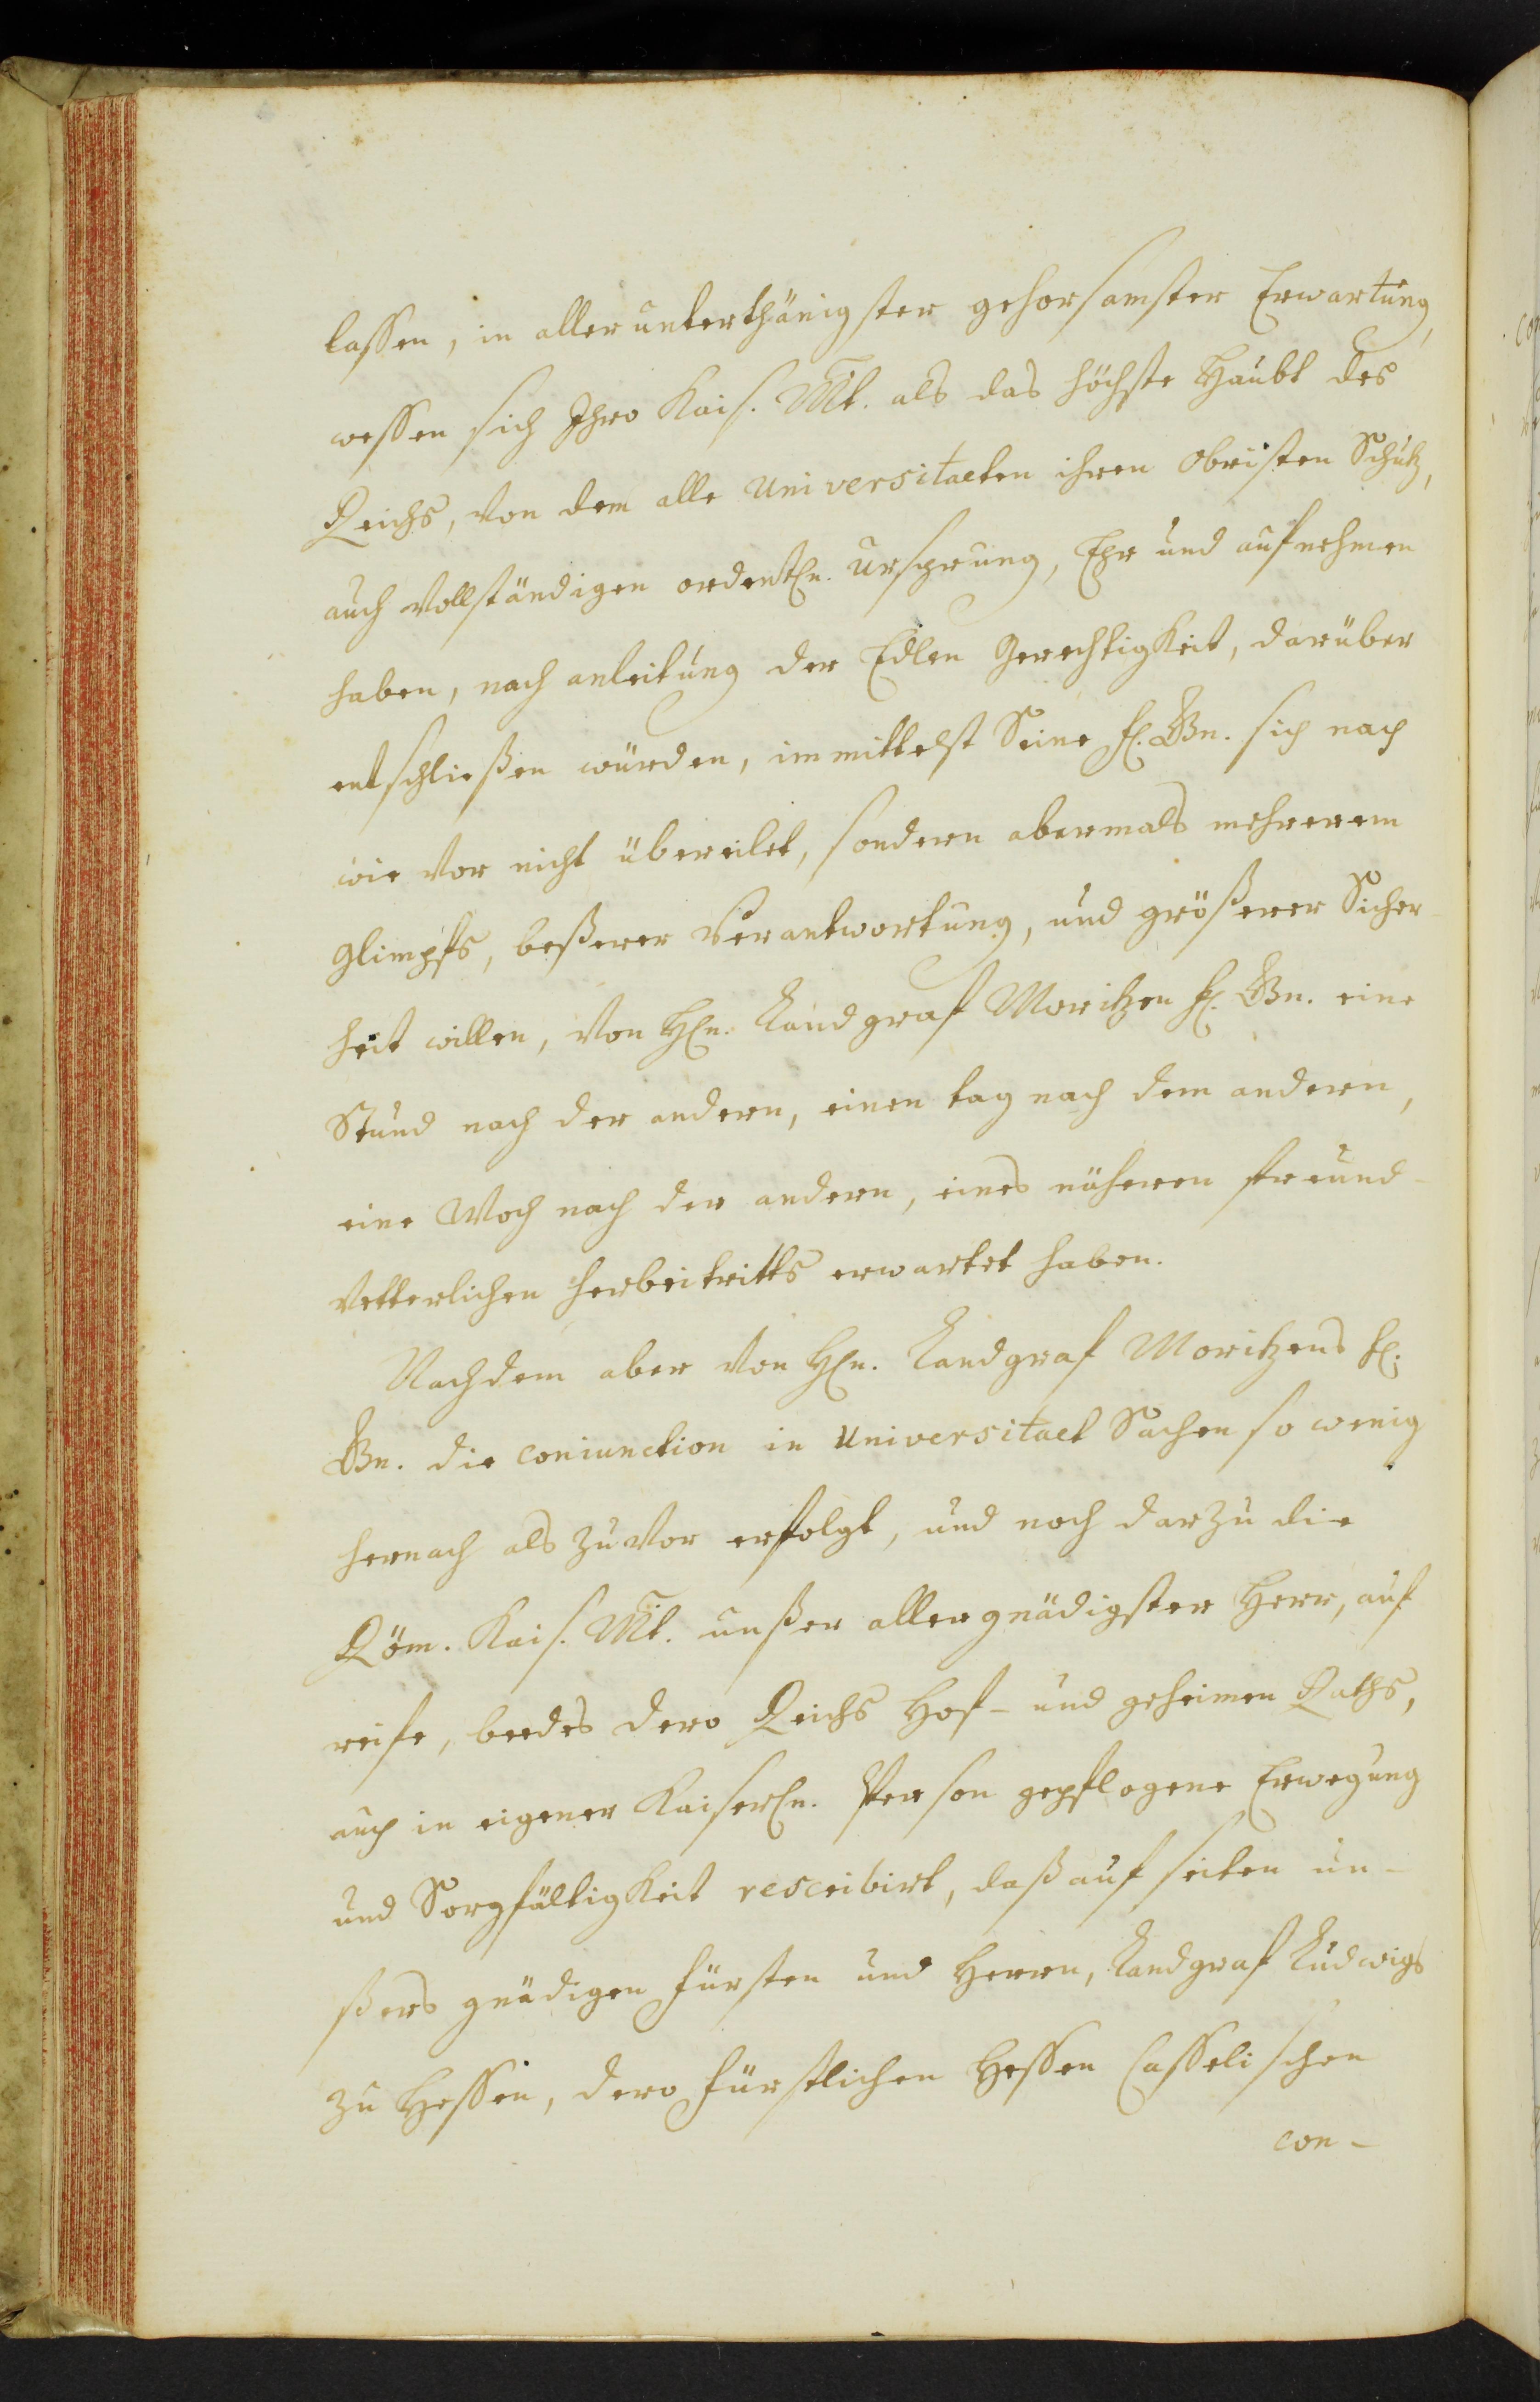 lassen, in aller unterthänigster gehorsamster Erwartung,
wessen sich Ihro Kais. Mt. als das höchste Haubt des
Reichs, von dem alle Universitaeten ihren obristen Schutz,
auch vollständigen ordentln. Ursprung, Ehr und aufnehmen
haben, nach anleitung der Edlen Gerechtigkeit, darüber
entschließen würden, immittelst Seine fl. Gn. sich nach
wie vor nicht übereilet, sondern abermals mehrerem
Glimpfs, beßerer Verantwortung, und größerer Sicher
heit willen, von Hn. Landgraf Moritzen fl. Gn. eine
Stund nach der andern, einen tag nach dem andern,
eine Woch nach der andern, eines näheren freund-
vetterlichen herbeitritts erwartet haben.
Nachdem aber von Hn. Landgraf Moritzens fl.
Gn. die coniunction in Universitaet Sachen so wenig
hernach als zuvor erfolgt, und noch darzu die
Röm. Kais. Mt. unßer allergnädigster Herr, auf
reife, beedes dero Reichs Hof- und geheimen Raths,
auch in eigener Kaiserln. Person gepflogene Erwegung
und Sorgfältigkeit rescribirt, daß auf seiten un-
ßers gnädigen Fürsten und Herrn, Landgraf Ludwigs
zu Hessen, dero Fürstlichen Hessen Casselischen
con-